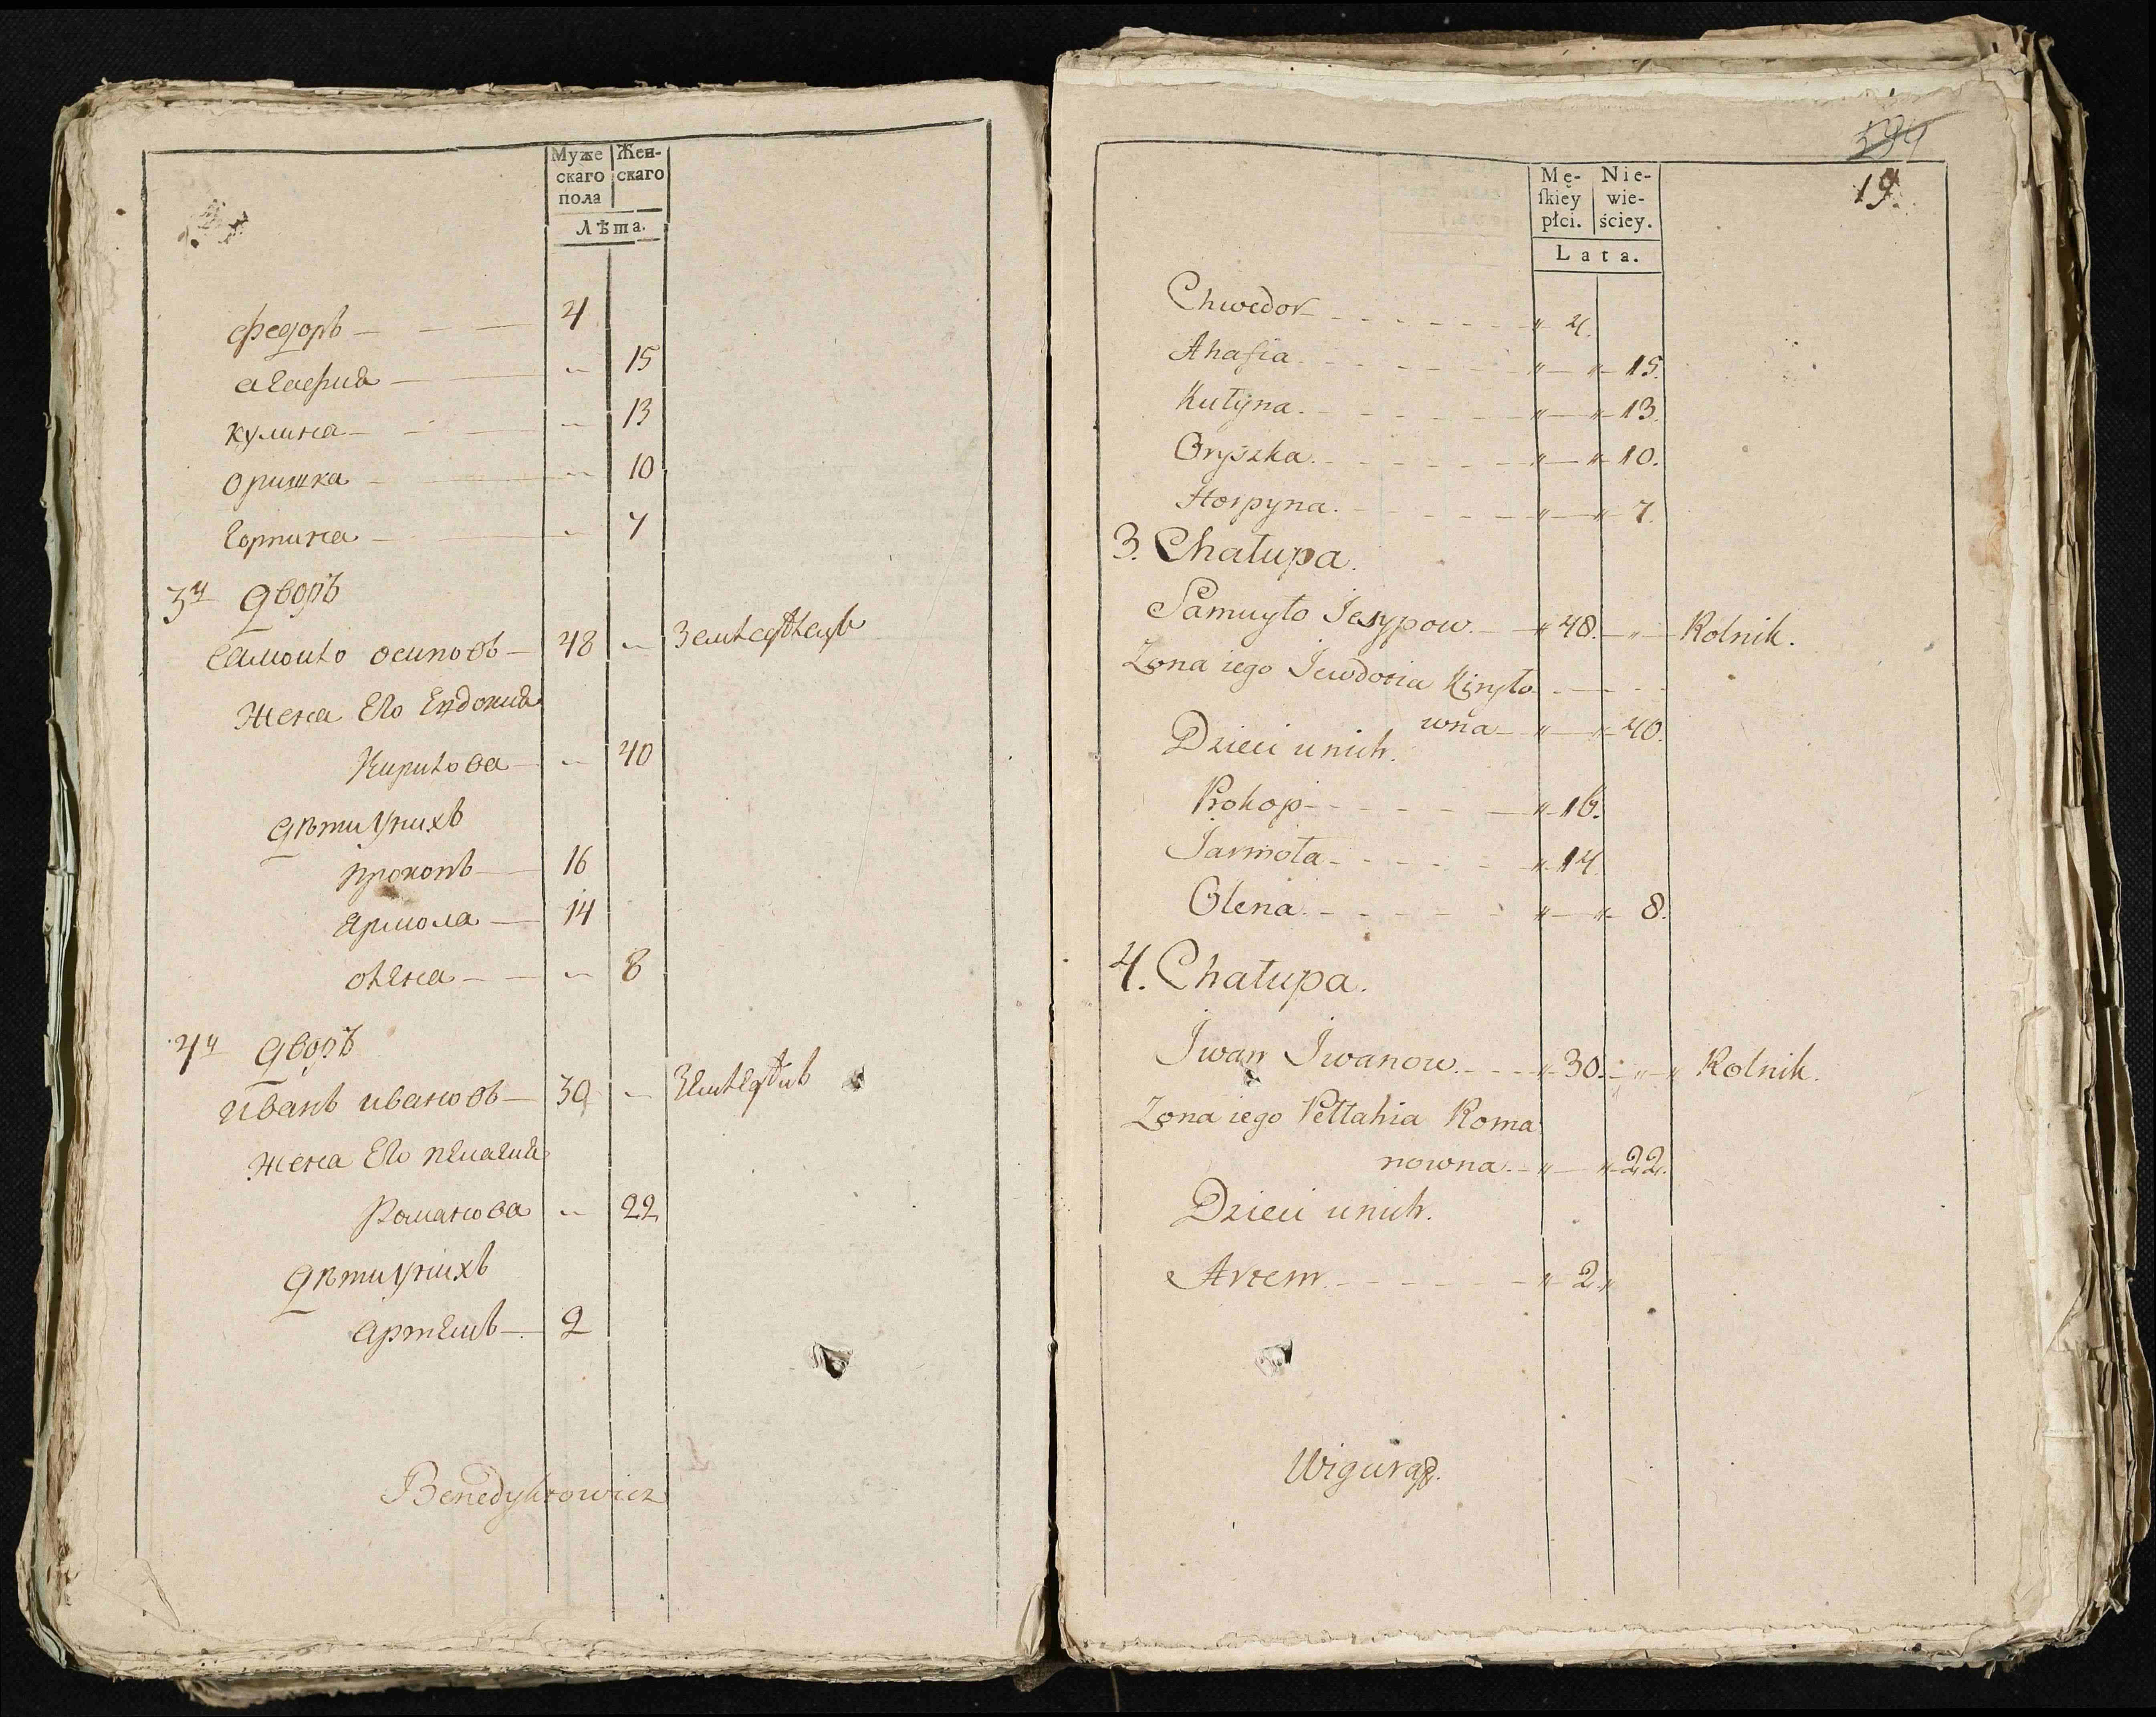 Муже Жен-
скаго скаго
пола
Лѣта.
Федоръ — 4
агафия — 15
кулина — 13
оришка — 10
горпина — 7
3й дворъ
самойло осиповъ — 48 — Земледѣлецъ
жена Его Евдокия
Кирилова — 40
дѣти унихъ
прокопъ — 16
ярмола — 14
олена — 8
4й дворъ
иванъ ивановъ — 30 —
жена Его пелагия
Романова — 22
дѣти унихъ
артемъ — 2
Benedyktowicz
594
19
Mę- Nie-
ſkiey wie-
płci. ściey.
Lata.
Chwedor - - - „ 4.
Ahafia. - - - „ — „ 15.
Kułyna. - - - „ — „ 13.
Oryszka. - - - „ — „ 10.
Horpyna. - - - „ — „ 7.
3. Chałupa.
Samuyło Jesypow. — „ 48. — „ — Rolnik.
Zona iego Jewdosia Kiryło
wna — „ — „ 40.
Dzieci unich.
Prokop - - - „ 16.
Jarmoła - - - „ 14.
Olena. - - - „ — „ 8.
4. Chałupa.
Jwan Jwanow. - - - „ 30. - „ — „ Rolnik.
Zona iego Pełłahia Roma
nowna. — „ — „ 22.
Dzieci unich.
Artem. - - - „ 2 „
Wigura